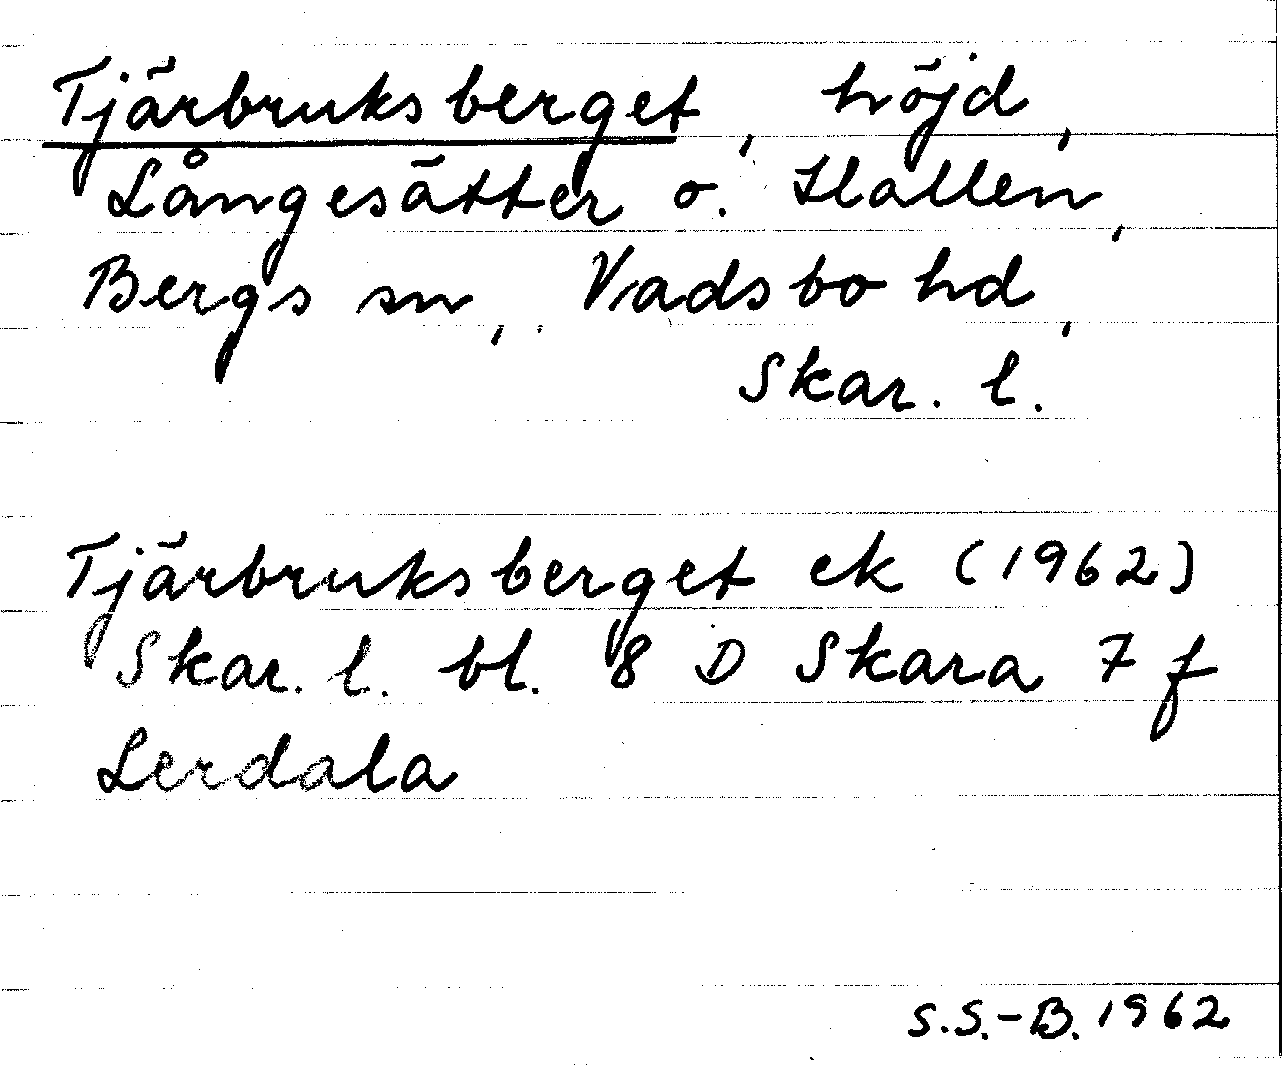 Tjärbruksberget, höjd,
Långesätter o. Hallen,
Bergs sn, Vadsbo hd,
Skar. l.
Tjärbruksberget ek (1962)
Skar. l. bl. 8 D Skara 7 f
Lerdala
S.S.-B. 1962